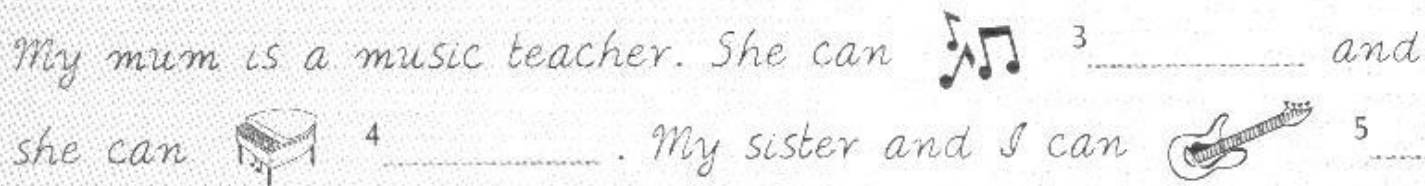 My mum is a music teacher. She can 3 ______ and
she can 4 ______. My sister and I can 5 ___